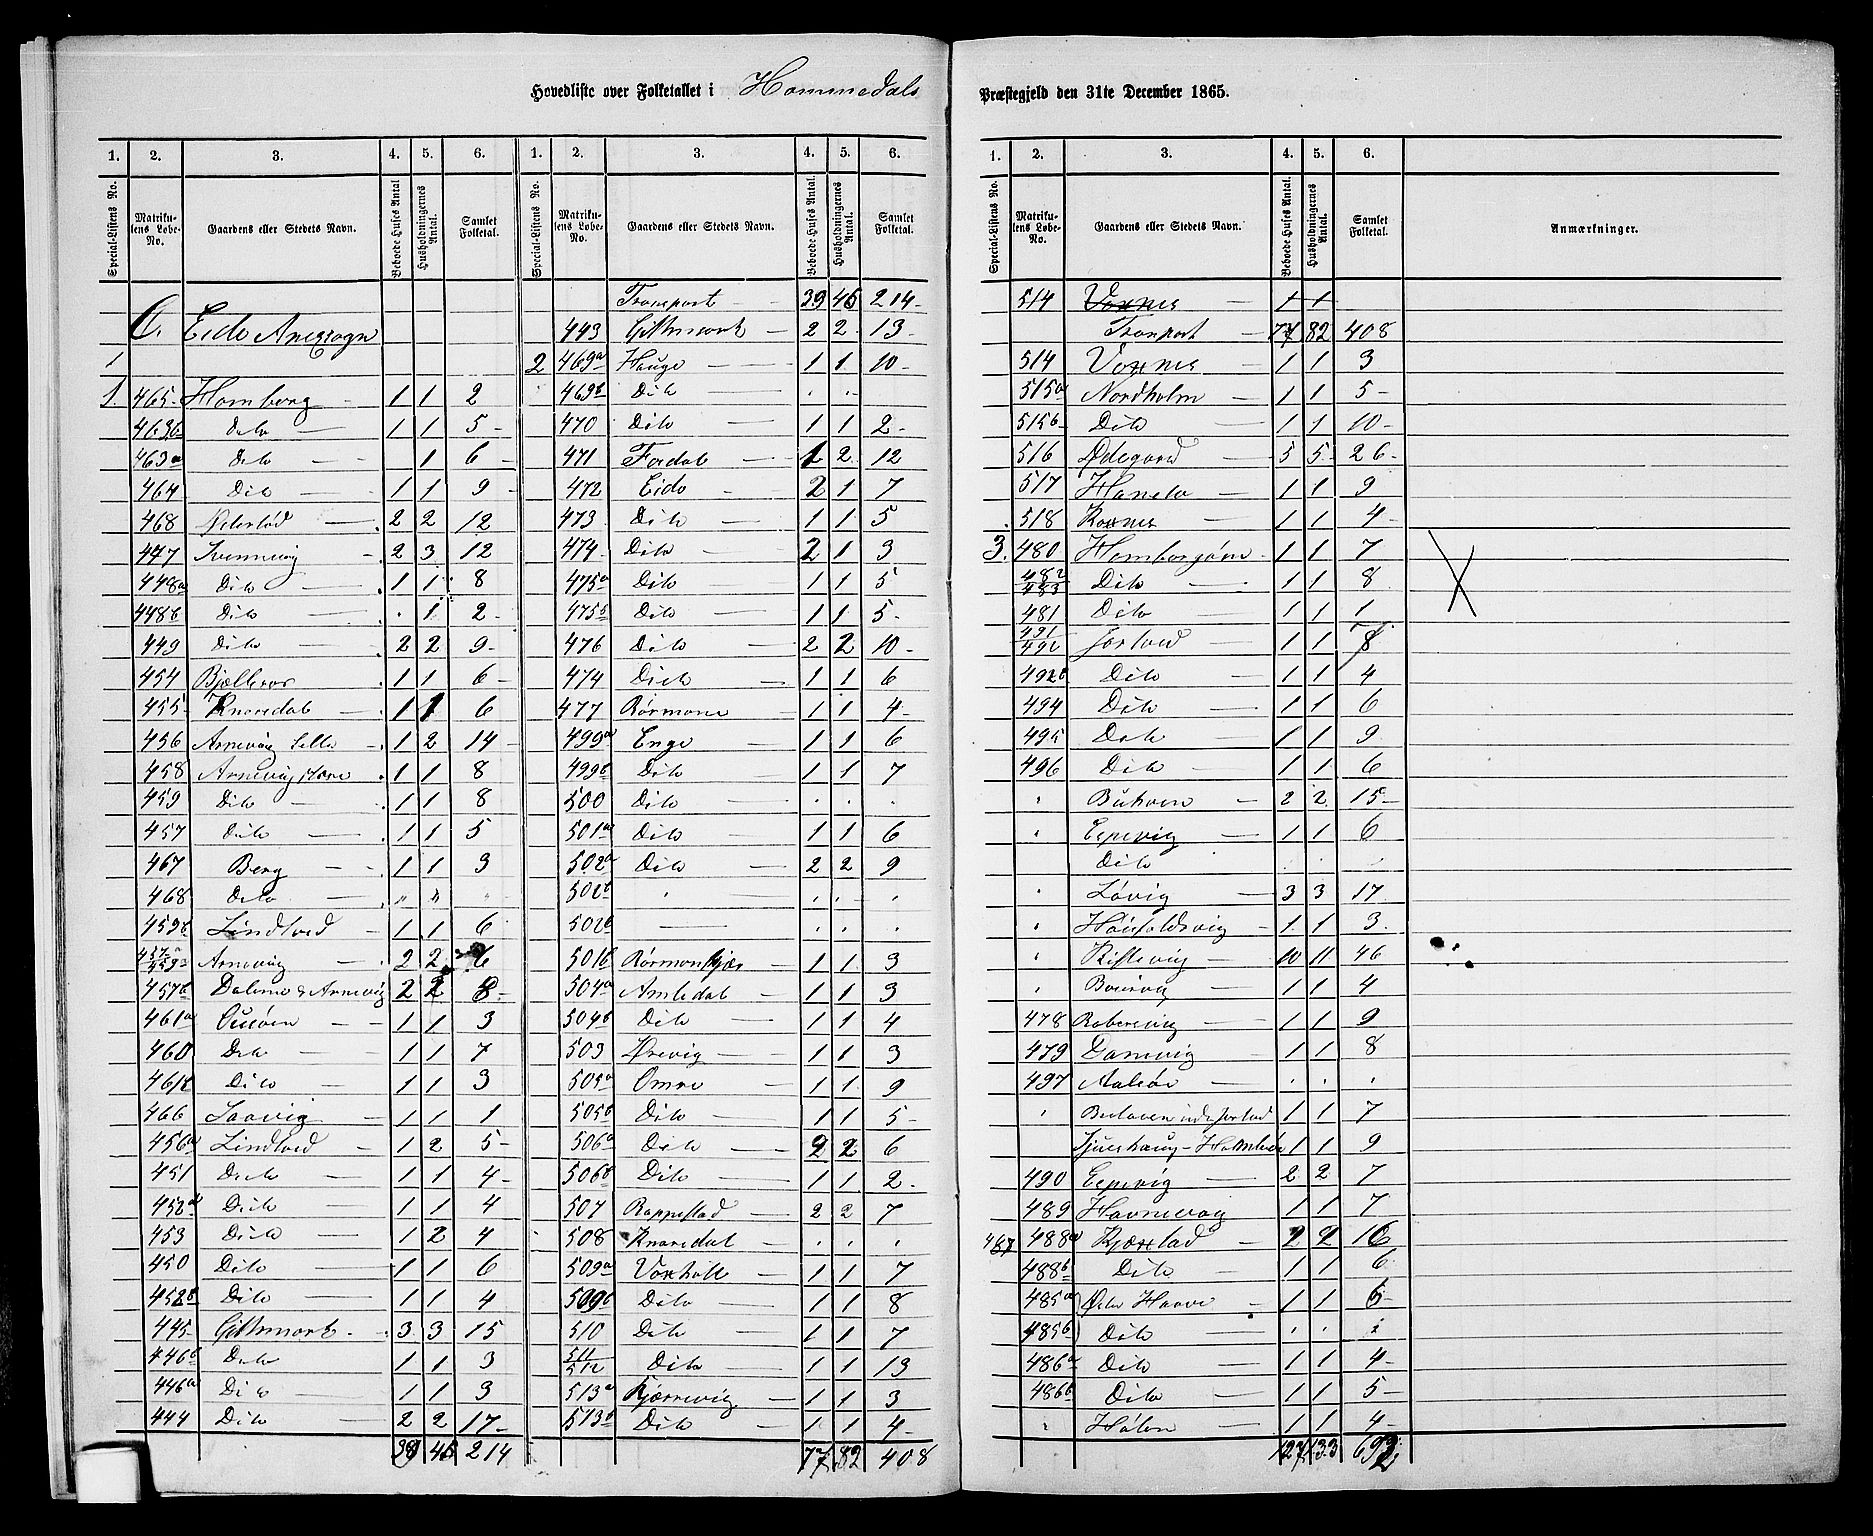 Hovedliste over Folketallet i Hommedals Præstegjeld den 31te December 1865.
1. 2. 3. 4. 5. 6. 1. 2. 3. 4. 5. 6.
Special-Listens No. Matrikulens Løbe-No. Gaardens eller Stedets Navn. Beboede Huses Antal Husholdningernes Antal. Samlet Folketal.
Special-Listens No. Matrikulens Løbe-No. Gaardens eller Stedets Navn. Beboede Huses Antal. Husholdningernes Antal. Samlet Folketal.
C. Eide Anexsogn
1
1. 465 Homborg 1 1 2
463b Dito 1 1 5
463a Dito 1 6
464 Dito 1 1 9
468 2 2 12
447 2 3 12
448a Dito 1 1 8
448b Dito . 1 2
449 Dito 2 2 9
454 1 1 6
455 Knaredal 1 1 6
456 Arnevig Lille 1 2 14
458 Arnevig store 1 1 8
459 Dito 1 1 8
457 Dito 1 1 5
467 Berg 1 1 3
468 Dito " " "
459b Lindtved 1 1 6
Arnevig 2 2 6
457b Dalene & Arnevig 2 2 8
461a 1 1 3
460 Dito 1 1 7
461b Dito 1 1 3
466 Saavig 1 1 1
456a Lindtved 1 2 5
451 Dito 1 1 4
452a Dito 1 1 4
453 Dito 1 2 4
450 Dito 1 1 6
452b Dito 1 1 4
445 Gitmark 3 3 15
446b Dito 1 1 3
446a Dito 1 1 3
444 Dito 2 2 17
39 46 214
Transport 39 46 214
443 Gitmark 2 2 13
2 469a Hauge 1 1 10
469b Dito . . .
470 Dito 1 1 2
471 Fordal 1 2 12
472 Eide 2 1 7
473 Dito 1 1 5
474 Dito 2 1 3
475a Dito 1 1 5
475b Dito 1 1 5
476 Dito 2 2 10
474 Dito 1 1 6
477 Rørmone 1 1 4
499a Enge 1 1 6
499b Dito 1 1 7
500 Dito . . .
501a Dito 1 1 6
502a Dito 2 2 9
502b . . .
502b . . .
501b Rørmonkjær 1 1 3
504a Amledal 1 1 3
504b Dito 1 1 4
503 Ørevig 1 1 3
505a Omre 1 1 9
505b Dito 1 1 5
506a Dito 2 2 6
506b Dito 1 1 2
507 Roppestad 2 2 7
508 Knaredal . . .
509a Voxholt 1 1 7
509b Dito 1 1 8
510 Dito 1 1 7
511/512 Dito 1 1 13
513a Kjærrevig 1 1 3
513b Dito 1 1 4
77 82 408
1. 2. 3. 4. 5. 6.
Special-Listens No. Matrikulens Løbe-No. Gaardens eller Stedets Navn. Beboede Huses Antal. Husholdningernes Antal. Samlet Folketal. Anmærkninger.
514 Voxnes 1 1
Transport 77 82 408
514 Voxnes 1 1 3
515a Nordholm 1 1 5
515b Dito 1 1 10
516 Ødegaard 5 5 26
517 1 1 9
518 Roxnes 1 1 4
3. 480 1 1 7
482/483 Dito 1 1 8
481 Dito 1 1 1
491/492 1 1 8
492b Dito 1 1 4
494 Dito 1 1 6
495 Dito 1 1 9
496 Dito 1 1 6
" 2 2 15
" Espevig 1 1 6
Dito
" Løvig 3 3 17
" 1 1 3
" Kistevig 10 11 46
" 1 1 4
478 1 1 9
479 1 1 8
497 . . .
" 1 1 7
1 1 9
490 Espevig 2 2 7
489 Havnevaag 1 1 7
487 488a Kjæxtad 2 2 16
488b Dito 1 1 6
485a Øster Haave 1 1 5
485b Dito . . .
486a Dito 1 1 4
486b Dito 1 1 5
" Hølen 1 1 4
127 133 692